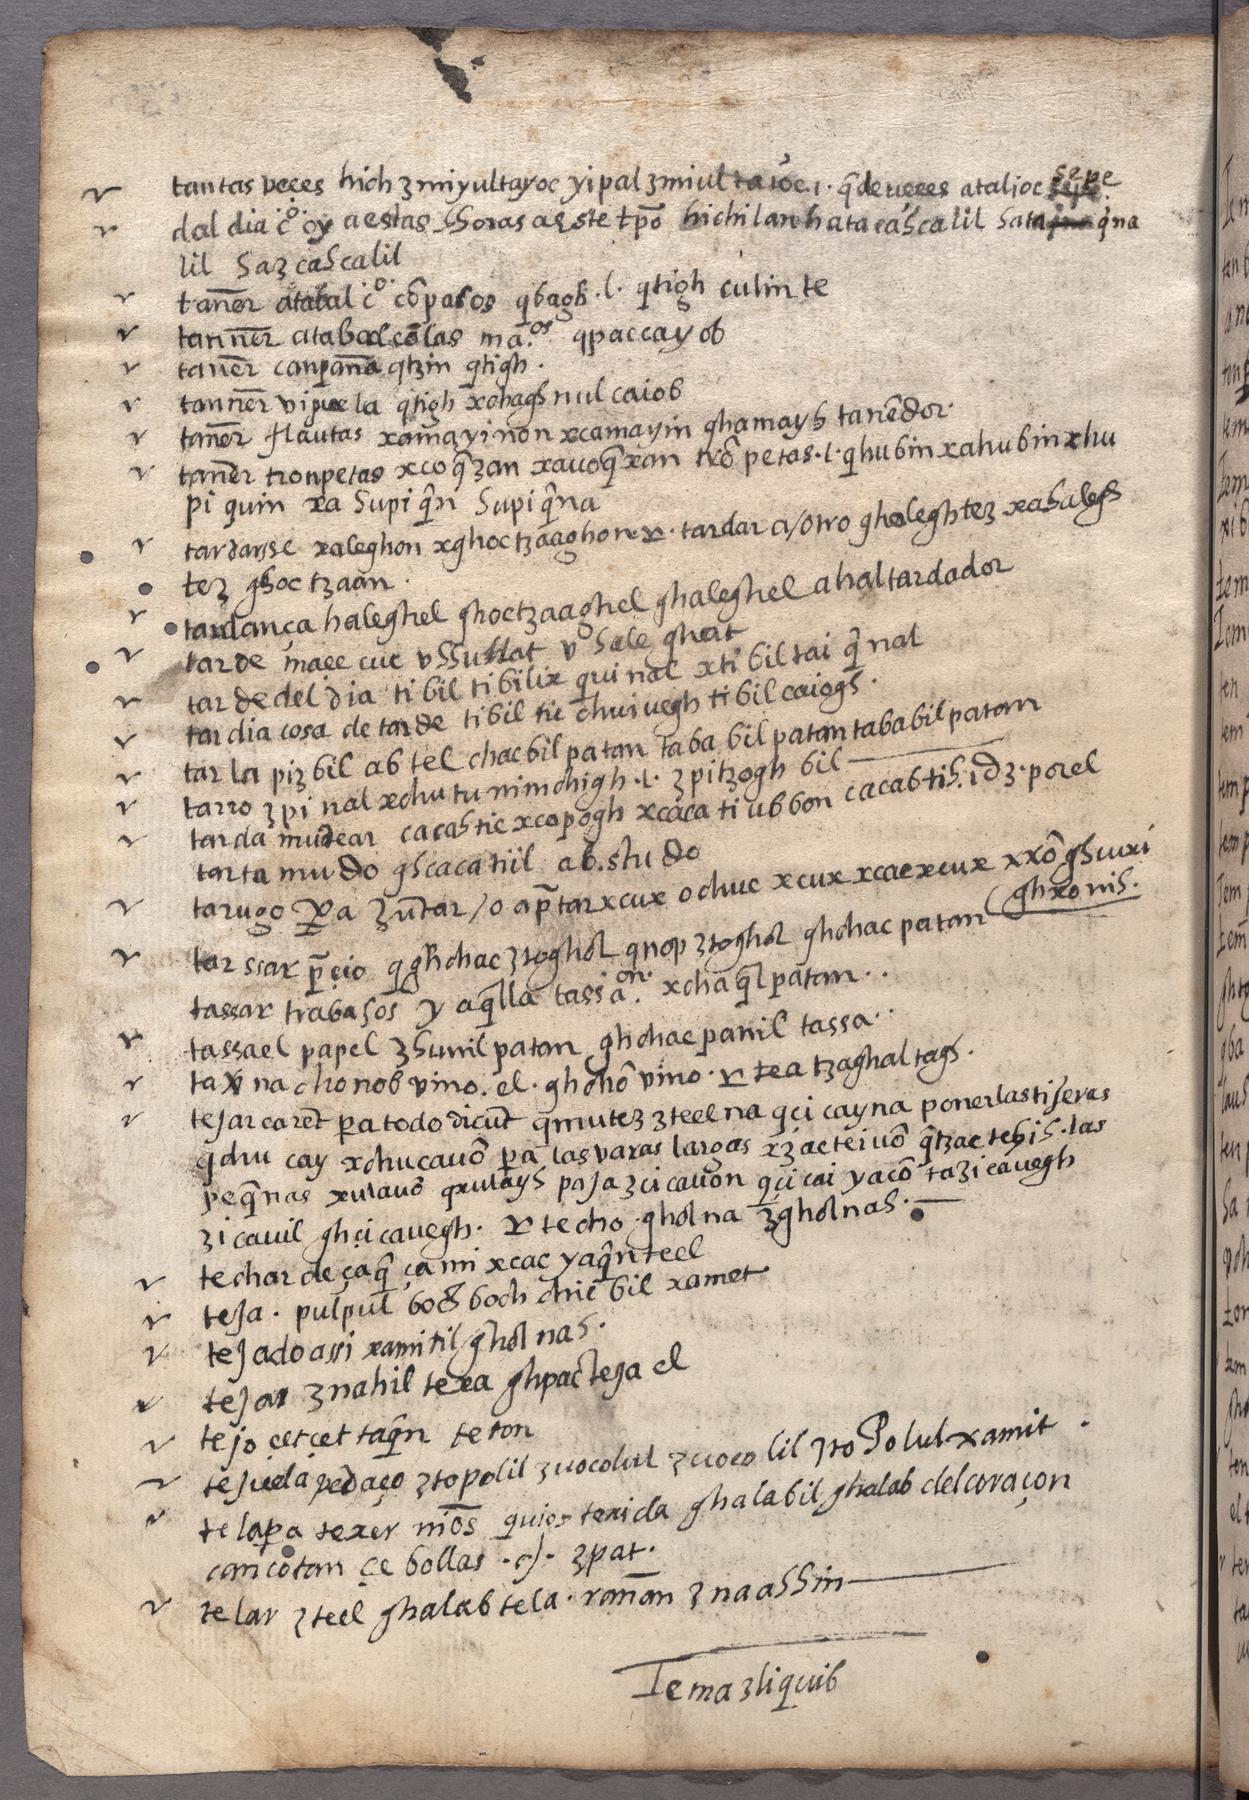 tantas veçes hich ʒmiyultayoc yipal ʒmiul .ı. q̃ deveces atalioc sepe
dal dia c̊ oy a estas horas a este tp̃o hichilan hata cahcalil hata qna
lil haʒ cahcalil
tañer atabal c̊ cõpasos qbagh .l. qtigh culinte
tanñer atabal cõlas ma.os qpaccayob
tañer canpana qtzin qtigh.
tanñer vihuela qtigh xchagh nul caiob
tañer flautas xamayinon xcamayin ghamayh tanẽdor.
tañer tronpetas xcoq̃ʒan xavoq̃xan trõpetas .l. qhubin xahubin xhu
pi quin xa hupi q̃n hupiq̃na
tardarsse xaleghon xghoctzaaghon r. tardar a/otro ghaleghteʒ xahalegh
teʒ ghoctzaan.
tardança haleghel ghoctzaaghel ghaleghel ahaltardador
tarde maee cuc vhhullat vhale gheat
tarde del dia tibil tibilix quinal xtibiltai q̃nal
tardia cosa de tarde tibil tic chuivegh tibil caiogh.
tarla piʒbil abtel chacbil patan taba bil patan tababil patan
tarro ʒpi nal xchutu nimchigh .l. ʒpitzogh bil
tarda mudear cacahtic xcopogh xcaca ti ubbon cacabtih. idʒ. porel
tartamudo ghcacatiil ab.studo
tarugo p̃a ʒũtar /o ap̃tar xcux ochuc xcux xcaexcux xxõ ghcuxi
ghxonih.
tarssar p̃çio qghchac ʒtoghol qnop ʒtoghol ghchac patan
tassar trabajos y aq̃lla tassa.on xchaq̃l patan..
tassael papel ʒhunil patan ghchac panil tassa..
taxna chonob vino. el. ghchõ vino. r tea tzaghal tagh.
tejar caret p̃a todo dicũt qmuteʒ ʒteel na qçi cayna poner las tijeras
qchu cay xchucavõ p̃a las varas largas xʒacteivõ q̃tzac tehih. las
peq̃nas xulavõ qxulayh paja ʒicavon qçi cai yacõ taʒicavegh
ʒicavil ghçicavegh. r techo. ghol na ʒghol nah.
techar de çaq̃ çami xcac yaq̃nteel
teja. pulpul boch boch chicbil xamet
tejado assi xamitil ghol nah.
tejar ʒnahil texa ghpac teja el
tejo çetçet taq̃n teton
tejuela pedaço ʒtopolil ʒvocolul ʒvocolil ʒto Polul xamit.
telapa texer niõs quier texida ghalabil ghalab del coraçon
cancotan çe bollas .cf. ʒpat.
telar ʒteel ghalab tela. ranan ʒnaahhin
Tema ʒliquib